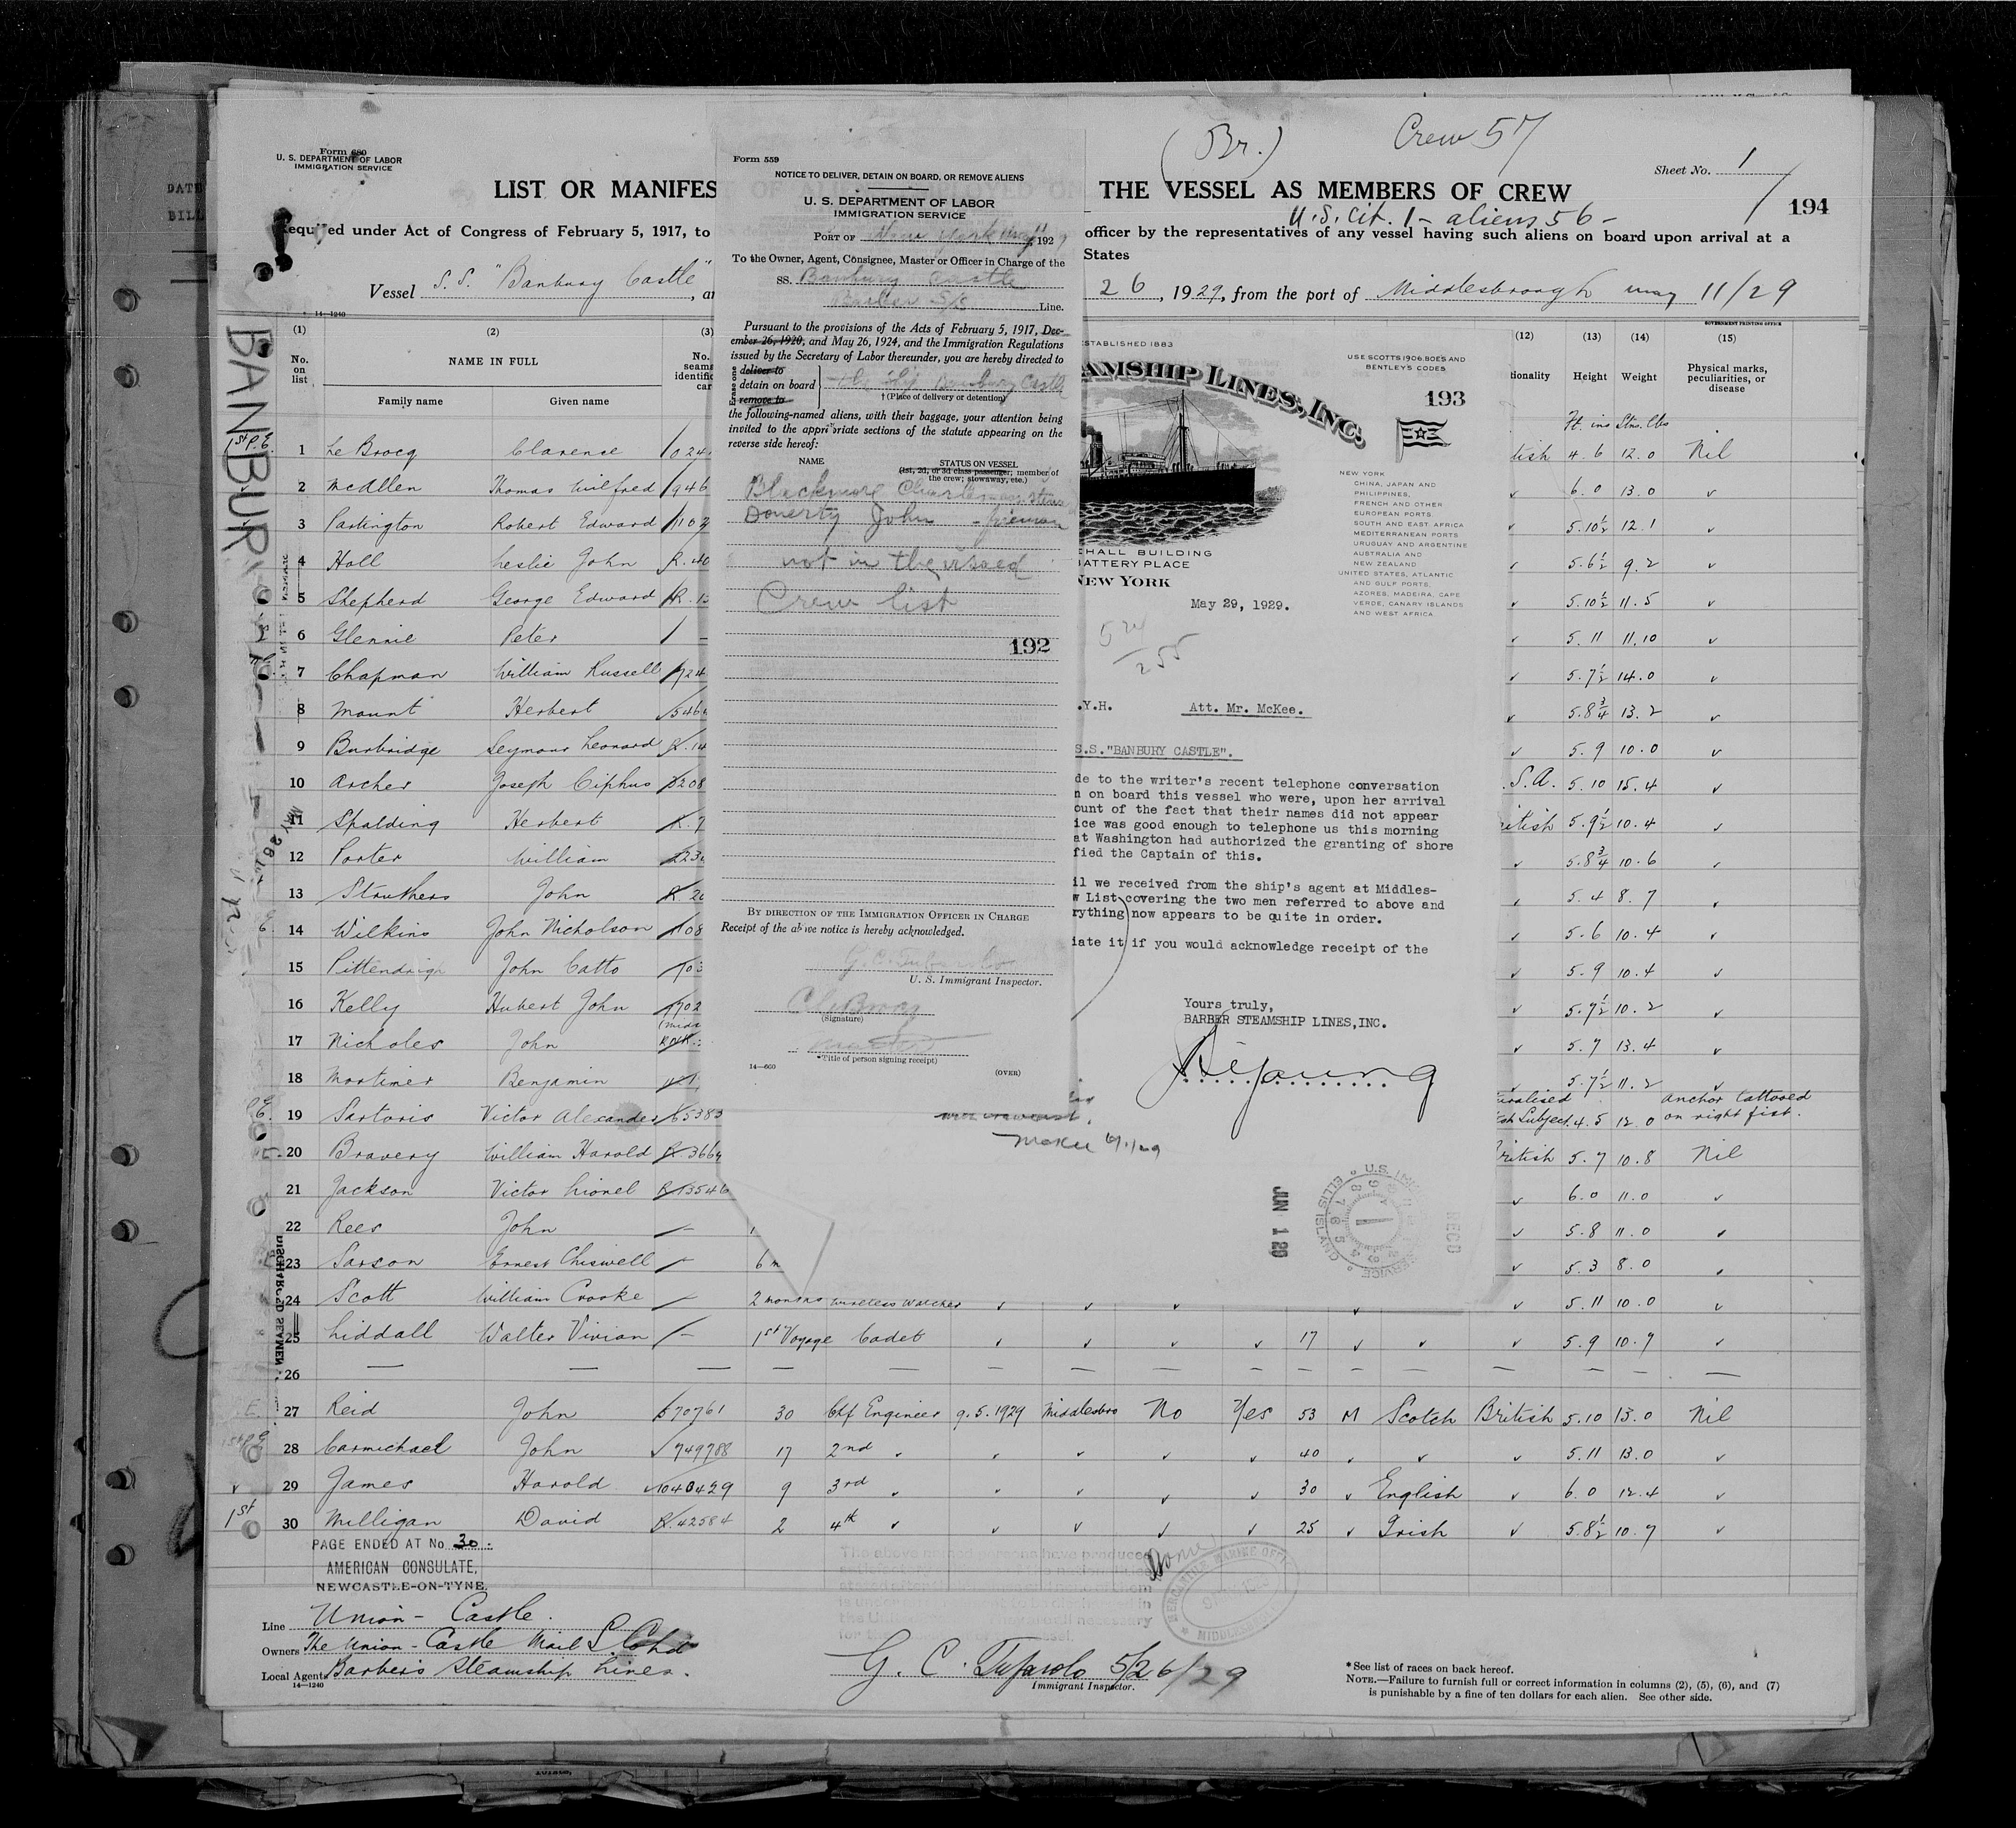 Form 680
U. S. DEPARTMENT OF LABOR
IMMIGRATION SERVICE
(Br.)
Crew 57
Sheet No. 1
LIST OR MANIFES
THE VESSEL AS MEMBERS OF CREW
U.S. Cit. 1 - aliens 56 -
194
Required under Act of Congress of February 5, 1917, to
officer by the representatives of any vessel having such aliens on board upon arrival at a
States
Vessel S.S. "Banbury Castle", ar
26, 1929, from the port of Middlesbrough May 11/29
14—1240
GOVERNMENT PRINTING OFFICE
(1) (2) (3)
No. on list
NAME IN FULL
Family name Given name
(12) (13) (14) (15)
tionality Height Weight Physical marks, peculiarities, or disease
Ft. ins Stns. lbs
BANBURY
1 Le Brocq Clarence
tish 4.6 12.0 Nil
2 McAllen Thomas Wilfred 946
✓ 6.0 13.0 ✓
3 Partington Robert Edward
✓ 5.10½ 12.1 ✓
4 Hall Leslie John R. 40
✓ 5.6½ 9.2 ✓
5 Shepherd George Edward
✓ 5.10½ 11.5 ✓
6 Glennie Peter
✓ 5.11 11.10 ✓
7 Chapman William Russell 724
✓ 5.7½ 14.0 ✓
8 Mount Herbert 546
✓ 5.8¾ 13.2 ✓
9 Burbridge Seymour Leonard R. 14
✓ 5.9 10.0 ✓
10 Archer Joseph Ciphus 208
.S.A. 5.10 15.4 ✓
11 Spalding Herbert R. 7
ritish 5.9½ 10.4 ✓
12 Porter William
✓ 5.8¾ 10.6 ✓
13 Struthers John R 20
✓ 5.4 8.7 ✓
14 Wilkins John Nicholson 108
✓ 5.6 10.4 ✓
15 Pittendrigh John Catto
✓ 5.9 10.4 ✓
16 Kelly Hubert John 702
✓ 5.7½ 10.2 ✓
17 Nicholes John
✓ 5.7 13.4 ✓
18 Mortimer Benjamin
✓ 5.7½ 11.2 ✓
19 Sartoris Victor Alexander 65383
uralised
ish Subject. 4.5 12.0 anchor tattooed on right fist.
20 Bravery William Harold R 3664
British 5.7 10.8 Nil
21 Jackson Victor Lionel R 13546
✓ 6.0 11.0 ✓
22 Rees John
✓ 5.8 11.0 ✓
23 Sarson Ernest Chiswell 6 m
✓ 5.3 8.0 ✓
24 Scott William Crooke 2 months wireless watcher
✓ 5.11 10.0 ✓
25 Liddall Walter Vivian 1st Voyage Cadet ✓ ✓ ✓ ✓ 17 ✓ ✓ ✓ 5.9 10.7 ✓
26 — — — — — — — — — — — — — — — —
27 Reid John 570761 30 Chf Engineer 9.5.1929 Middlesbro No Yes 53 M Scotch British 5.10 13.0 Nil
28 Carmichael John 749788 17 2nd ✓ ✓ ✓ ✓ ✓ 40 ✓ ✓ ✓ 5.11 13.0 ✓
29 James Harold 1040429 9 3rd ✓ ✓ ✓ ✓ ✓ 30 ✓ English ✓ 6.0 12.4 ✓
30 Milligan David R. 42584 2 4th ✓ ✓ ✓ ✓ ✓ 25 ✓ Irish ✓ 5.8½ 10.7 ✓
DISCHARGED SEAMEN
PAGE ENDED AT No. 30.
AMERICAN CONSULATE,
NEWCASTLE-ON-TYNE.
Line Union - Castle.
Owners The Union - Castle Mail
Local Agents Barber's Steamship Lines.
14—1240
G. C. Tufarolo 5/26/29
Immigrant Inspector.
* See list of races on back hereof.
NOTE.—Failure to furnish full or correct information in columns (2), (5), (6), and (7)
is punishable by a fine of ten dollars for each alien. See other side.
Form 559
NOTICE TO DELIVER, DETAIN ON BOARD, OR REMOVE ALIENS
U. S. DEPARTMENT OF LABOR
IMMIGRATION SERVICE
PORT OF New York May 1929
To the Owner, Agent, Consignee, Master or Officer in Charge of the
SS. Banbury Castle
Barber S/S Line.
Pursuant to the provisions of the Acts of February 5, 1917, Dec-
ember 26, 1920, and May 26, 1924, and the Immigration Regulations
issued by the Secretary of Labor thereunder, you are hereby directed to
Erase one
deliver to
detain on board the ship Banbury Castle
remove to
† (Place of delivery or detention)
the following-named aliens, with their baggage, your attention being
invited to the appropriate sections of the statute appearing on the
reverse side hereof:
NAME
STATUS ON VESSEL
(1st, 2d, or 3d class passenger; member of
the crew; stowaway, etc.)
Blackmore Charles
Doherty John - fireman
not in the visaed
Crew list
192
BY DIRECTION OF THE IMMIGRATION OFFICER IN CHARGE
Receipt of the above notice is hereby acknowledged.
U. S. Immigrant Inspector.
(Signature)
Master
*Title of person signing receipt)
14—660
(OVER)
ESTABLISHED 1883
AMSHIP LINES, INC.
USE SCOTTS 1906. BOE'S AND
BENTLEY'S CODES
193
NEW YORK
CHINA, JAPAN AND
PHILIPPINES,
FRENCH AND OTHER
EUROPEAN PORTS.
SOUTH AND EAST AFRICA
MEDITERRANEAN PORTS
URUGUAY AND ARGENTINE
AUSTRALIA AND
NEW ZEALAND
UNITED STATES, ATLANTIC
AND GULF PORTS,
AZORES, MADEIRA, CAPE
VERDE, CANARY ISLANDS
AND WEST AFRICA
EHALL BUILDING
BATTERY PLACE
NEW YORK
May 29, 1929.
.Y.H. Att. Mr. McKee.
S.S."BANBURY CASTLE".
de to the writer's recent telephone conversation
n on board this vessel who were, upon her arrival
ount of the fact that their names did not appear
ice was good enough to telephone us this morning
at Washington had authorized the granting of shore
fied the Captain of this.
il we received from the ship's agent at Middles-
w List covering the two men referred to above and
rything now appears to be quite in order.
iate it if you would acknowledge receipt of the
Yours truly,
BARBER STEAMSHIP LINES,INC.
McKee 6/1/29
JUN 1 29
RECD
U.S.
ELLIS ISLAND